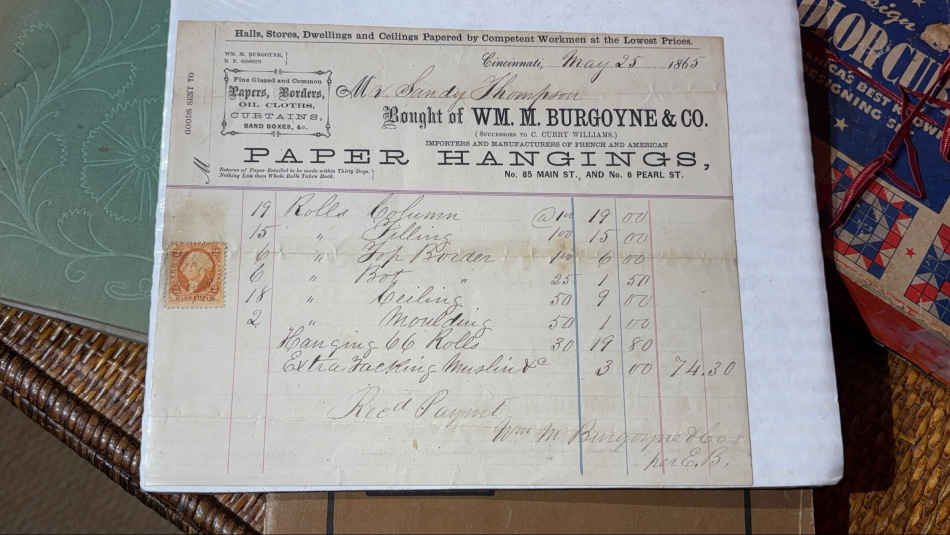 Halls, Stores, Dwellings and Ceilings Papered by Competent Workmen at the Lowest Prices.
WM. M. BURGOYNE,
Cincinnati, May 25 1865
GOODS SENT TO
M
Fine Glazed and Common
Papers, Borders,
OIL CLOTHS,
CURTAINS,
BAND BOXES, &c.
Mr Sandy Thompson
Bought of WM. M. BURGOYNE & CO.
(SUCCESSORS TO C. CURRY WILLIAMS.)
IMPORTERS AND MANUFACTURERS OF FRENCH AND AMERICAN
PAPER HANGINGS,
Returns of Paper Retailed to be made within Thirty Days.
Nothing Less than Whole Rolls Taken Back.
No. 85 MAIN ST., AND No. 6 PEARL ST.
19 Rolls Column @ 1 00 19 00
15 " Filling 1 00 15 00
6 " Top Border 1 00 6 00
6 " Bot " 25 1 50
18 " Ceiling 50 9 00
2 " Moulding 50 1 00
Hanging 66 Rolls 30 19 80
Extra Tacking Muslin &c 3 00 74.30
Recd Paymt
Wm M Burgoyne & Co
per E. B.